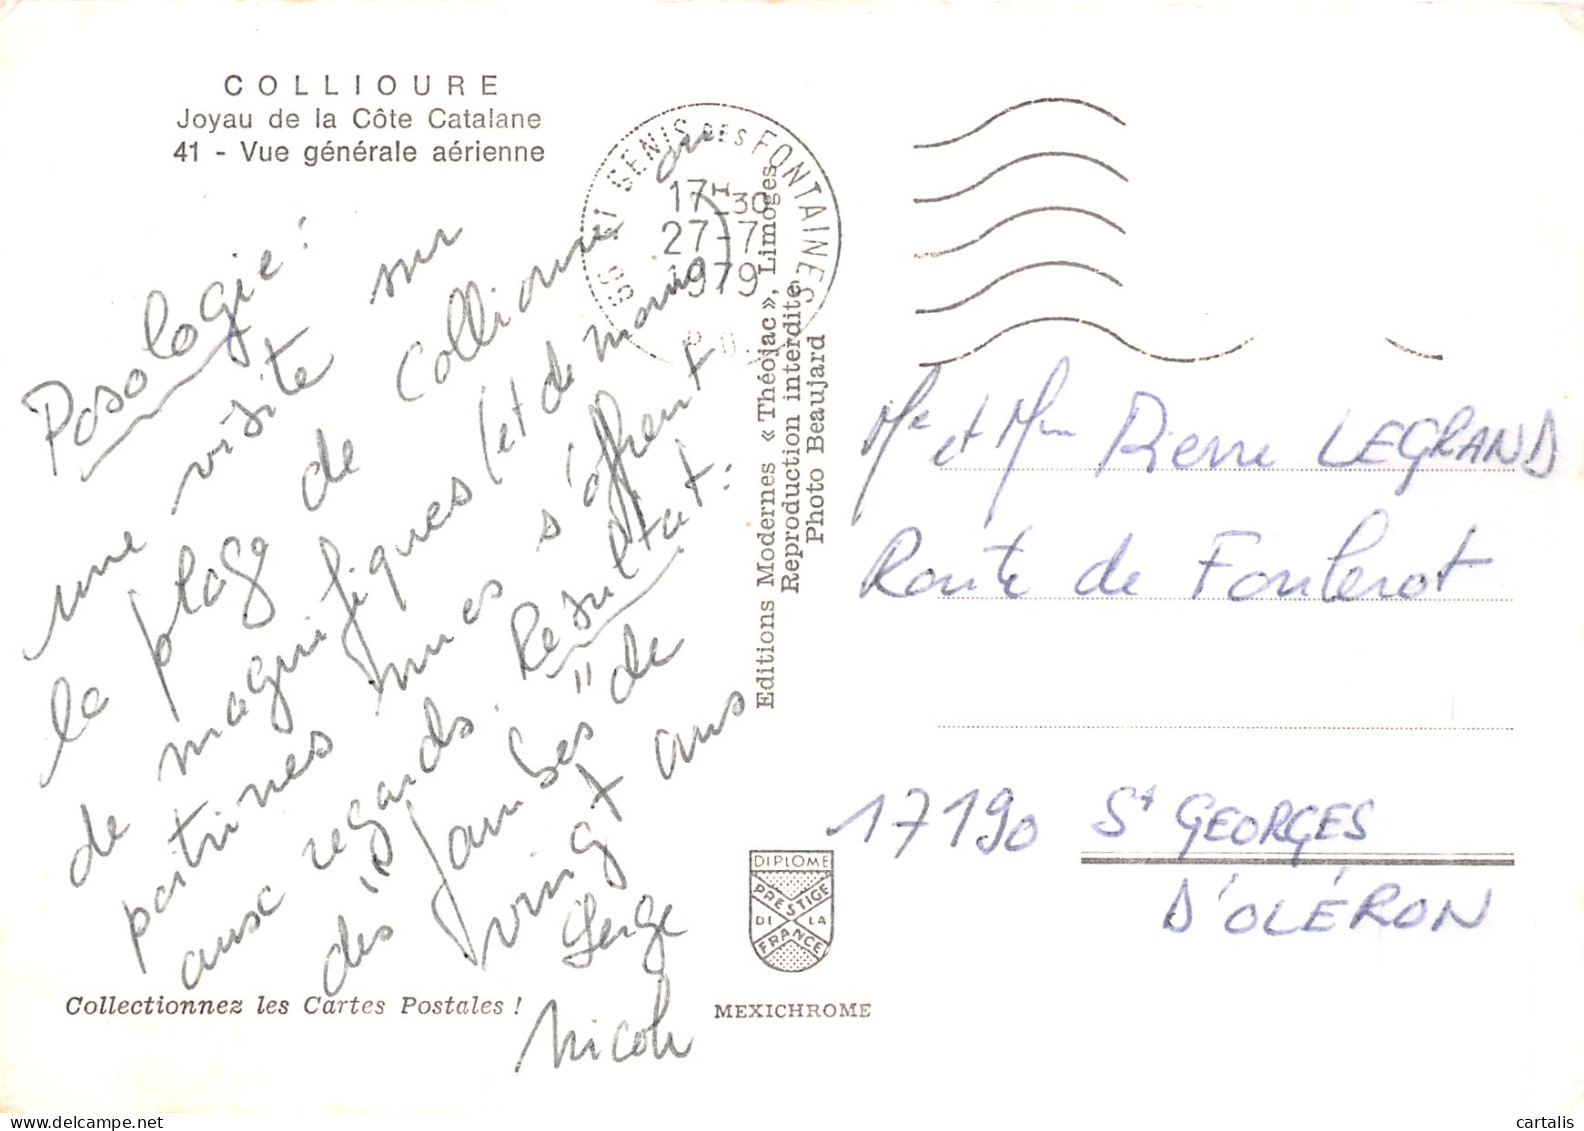 COLLIOURE
Joyau de la Côte Catalane
41 - Vue générale aérienne
Posologie :
une visite sur
la plage de Collioure où
de magnifiques (et de moins)
poitrines nues s'offrent
aux regards. Résultat :
des "Jambes" de
vingt ans
Serge
Nicole
Collectionnez les Cartes Postales !
66 GENIS DES FONTAINES
17H30
27-7
1979
P.O.
Editions Modernes « Théojac », Limoges
Reproduction interdite
Photo Beaujard
DIPLOME
PRESTIGE
DE LA
FRANCE
MEXICHROME
Mr et Mme Pierre LEGRAND
Route de
17190 St GEORGES
D'OLÉRON
cartalis